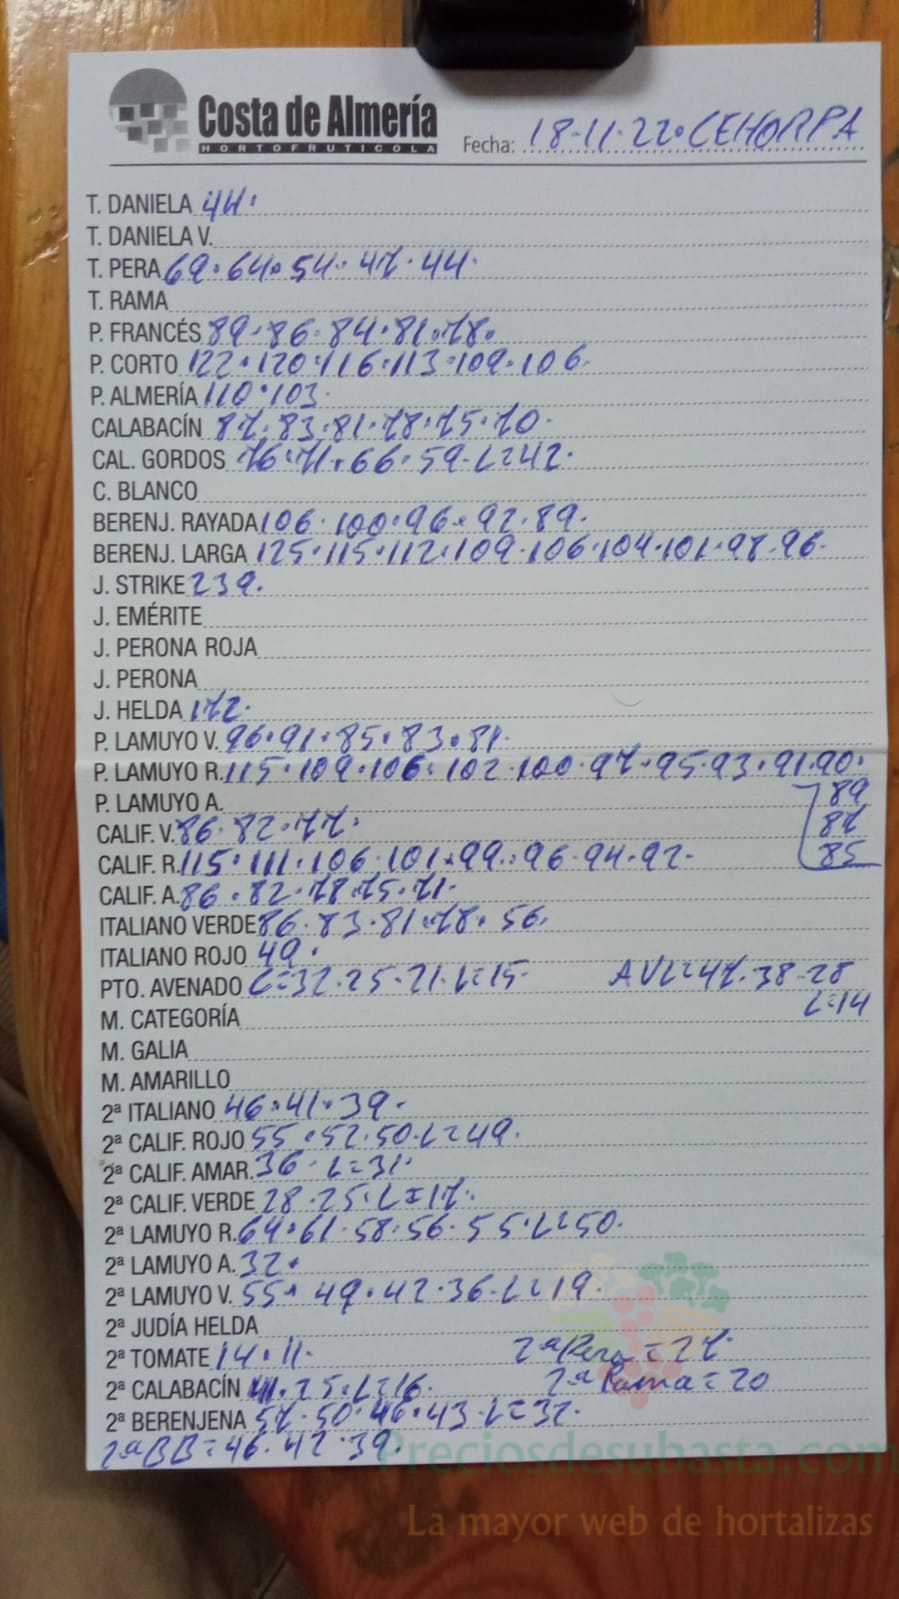 Costa de Almería
HORTOFRUTICOLA
Fecha: 18-11-22. CEHORPA
T. DANIELA 44.
T. DANIELA V.
T. PERA 69.64.54.47.44.
T. RAMA
P. FRANCÉS 89.86.84.81.78.
P. CORTO 122.120.116.113.109.106.
P. ALMERÍA 110.103.
CALABACÍN 87.83.81.78.75.70.
CAL. GORDOS 76.71.66.59.L=42.
C. BLANCO
BERENJ. RAYADA 106.100.96.92.89.
BERENJ. LARGA 125.115.112.109.106.104.101.98.96.
J. STRIKE 239.
J. EMÉRITE
J. PERONA ROJA
J. PERONA
J. HELDA 172.
P. LAMUYO V. 96.91.85.83.81.
P. LAMUYO R. 115.109.106.102.100.97.95.93.91.90.
P. LAMUYO A. 89
CALIF. V. 86.82.77. 87
CALIF. R. 115.111.106.101.99.96.94.92. 85
CALIF. A. 86.82.78.75.71.
ITALIANO VERDE 86.83.81.78.56.
ITALIANO ROJO 49.
PTO. AVENADO C=32.25.21.L=15 AVL=47.38.28
L=14
M. CATEGORÍA
M. GALIA
M. AMARILLO
2ª ITALIANO 46.41.39.
2ª CALIF. ROJO 55.52.50.L=49.
2ª CALIF. AMAR. 36.L=31.
2ª CALIF. VERDE 28.25.L=17.
2ª LAMUYO R. 64.61.58.56.55.L=50.
2ª LAMUYO A. 32.
2ª LAMUYO V. 55.49.42.36.L=19.
2ª JUDÍA HELDA
2ª TOMATE 14.11. 2ª Pera=27.
2ª CALABACÍN 41.25.L=16. 2ª Rama=20
2ª BERENJENA 57.50.46.43.L=32.
2ª BB=46.42.39.
Preciosdesubasta.com
La mayor web de hortalizas